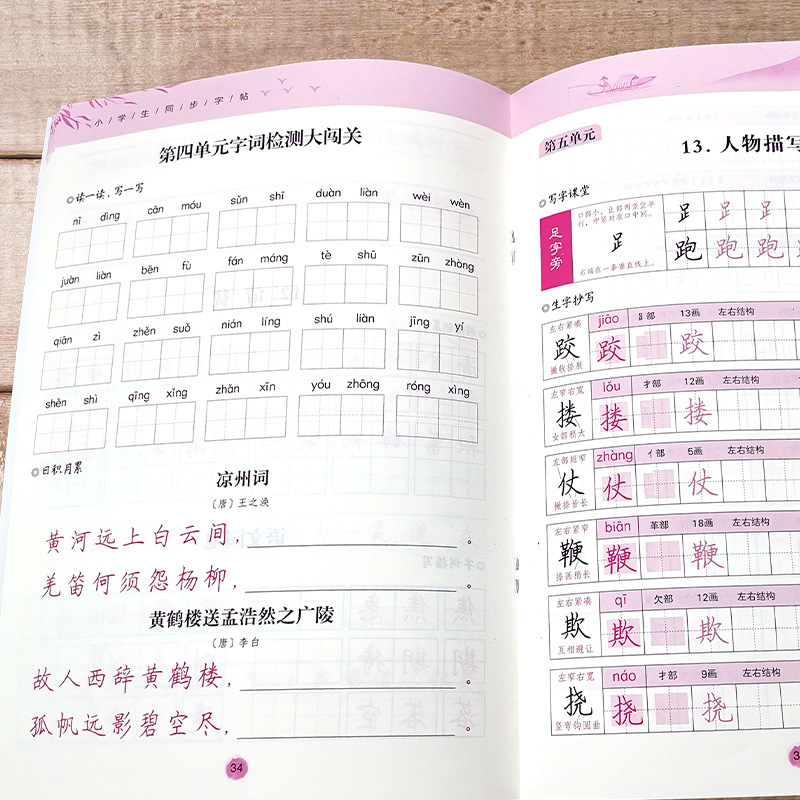 小学生同步字帖
第四单元字词检测大闯关
◎读一读,写一写
nǐ dìng cān móu sǔn shī duàn liàn wèi wèn
juàn liàn bēn fù fán máng tè shū zūn zhòng
qiān zì zhěn suǒ nián líng shú liàn jīng yí
shěn shì qīng xǐng zhǎn xīn yóu zhōng róng xìng
◎日积月累
凉州词
〔唐〕王之涣
黄河远上白云间,。
羌笛何须怨杨柳,。
黄鹤楼送孟浩然之广陵
〔唐〕李白
故人西辞黄鹤楼,。
孤帆远影碧空尽,。
34
第五单元
13. 人物描写
◎写字课堂
足字旁
口部小,止部两竖宜平
行,中竖对准口中间。
𧾷
右端在一条垂直线上。
𧾷 𧾷 𧾷
跑 跑 跑 跑
◎生字抄写
左右紧凑 jiāo 𧾷部 13画 左右结构
跤 跤 跤
撇收捺展
左窄右宽 lǒu 扌部 12画 左右结构
搂 搂 搂
女部稍大
左部短窄 zhàng 亻部 5画 左右结构
仗 仗 仗
撇捺皆长
左右紧窄 biān 革部 18画 左右结构
鞭 鞭 鞭
捺画稍长
左右紧凑 qī 欠部 12画 左右结构
欺 欺 欺
互相避让
左窄右宽 náo 扌部 9画 左右结构
挠 挠 挠
竖弯钩圆曲